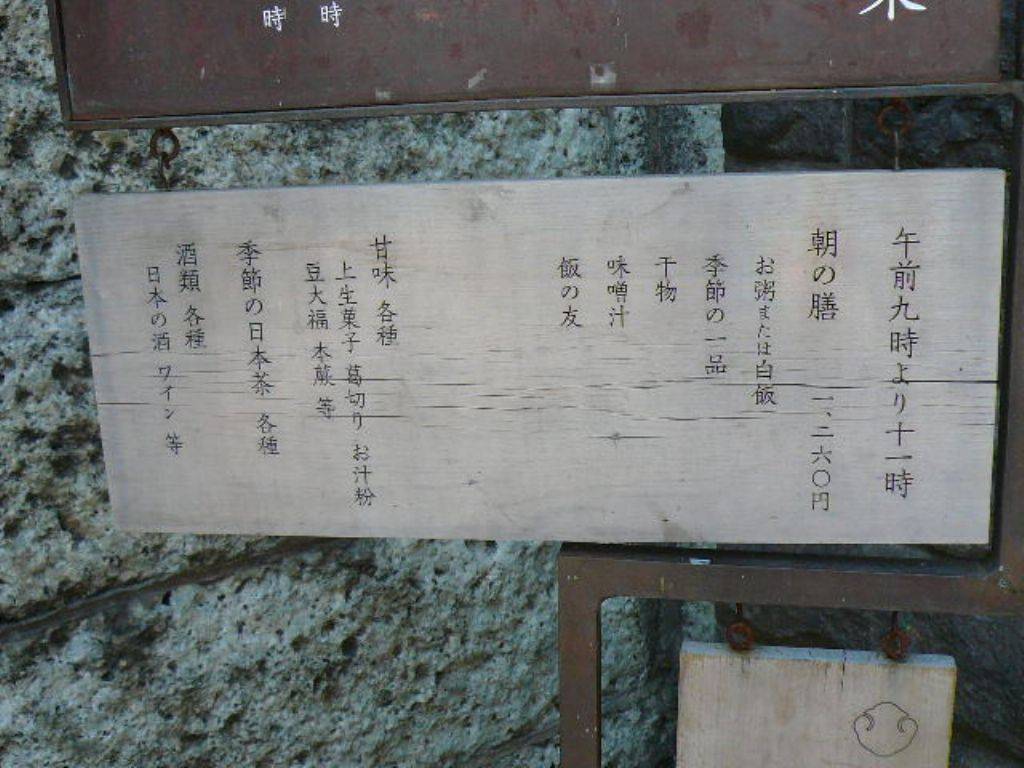 時
時
午前九時より十一時
朝の膳 一、二六〇円
お粥または白飯
季節の一品
干物
味噌汁
飯の友
甘味 各種
上生菓子 葛切り お汁粉
豆大福 本蕨 等
季節の日本茶 各種
酒類 各種
日本の酒 ワイン 等